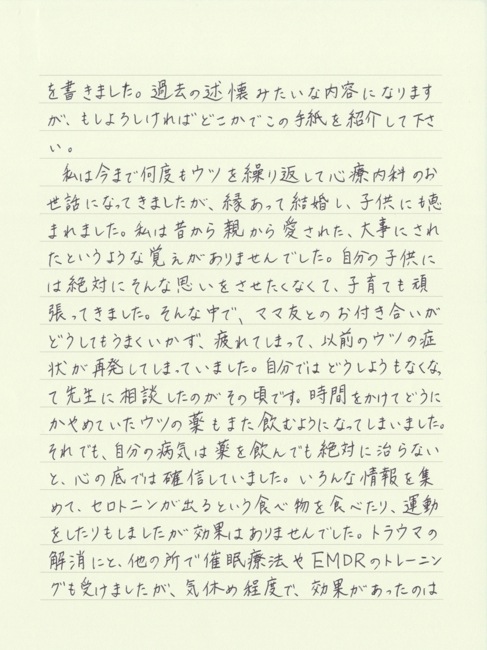 を書きました。過去の述懐みたいな内容になります
が、もしよろしければどこかでこの手紙を紹介して下さ
い。
私は今まで何度もウツを繰り返して心療内科のお
世話になってきましたが、縁あって結婚し、子供にも恵
まれました。私は昔から親から愛された、大事にされ
たというような覚えがありませんでした。自分の子供に
は絶対にそんな思いをさせたくなくて、子育ても頑
張ってきました。そんな中で、ママ友とのお付き合いが
どうしてもうまくいかず、疲れてしまって、以前のウツの症
状が再発してしまっていました。自分ではどうしようもなくなっ
て先生に相談したのがその頃です。時間をかけてどうに
かやめていたウツの薬もまた飲むようになってしまいました。
それでも、自分の病気は薬を飲んでも絶対に治らない
と、心の底では確信していました。いろんな情報を集
めて、セロトニンが出るという食べ物を食べたり、運動
をしたりもしましたが効果はありませんでした。トラウマの
解消にと、他の所で催眠療法やEMDRのトレーニン
グも受けましたが、気休め程度で、効果があったのは